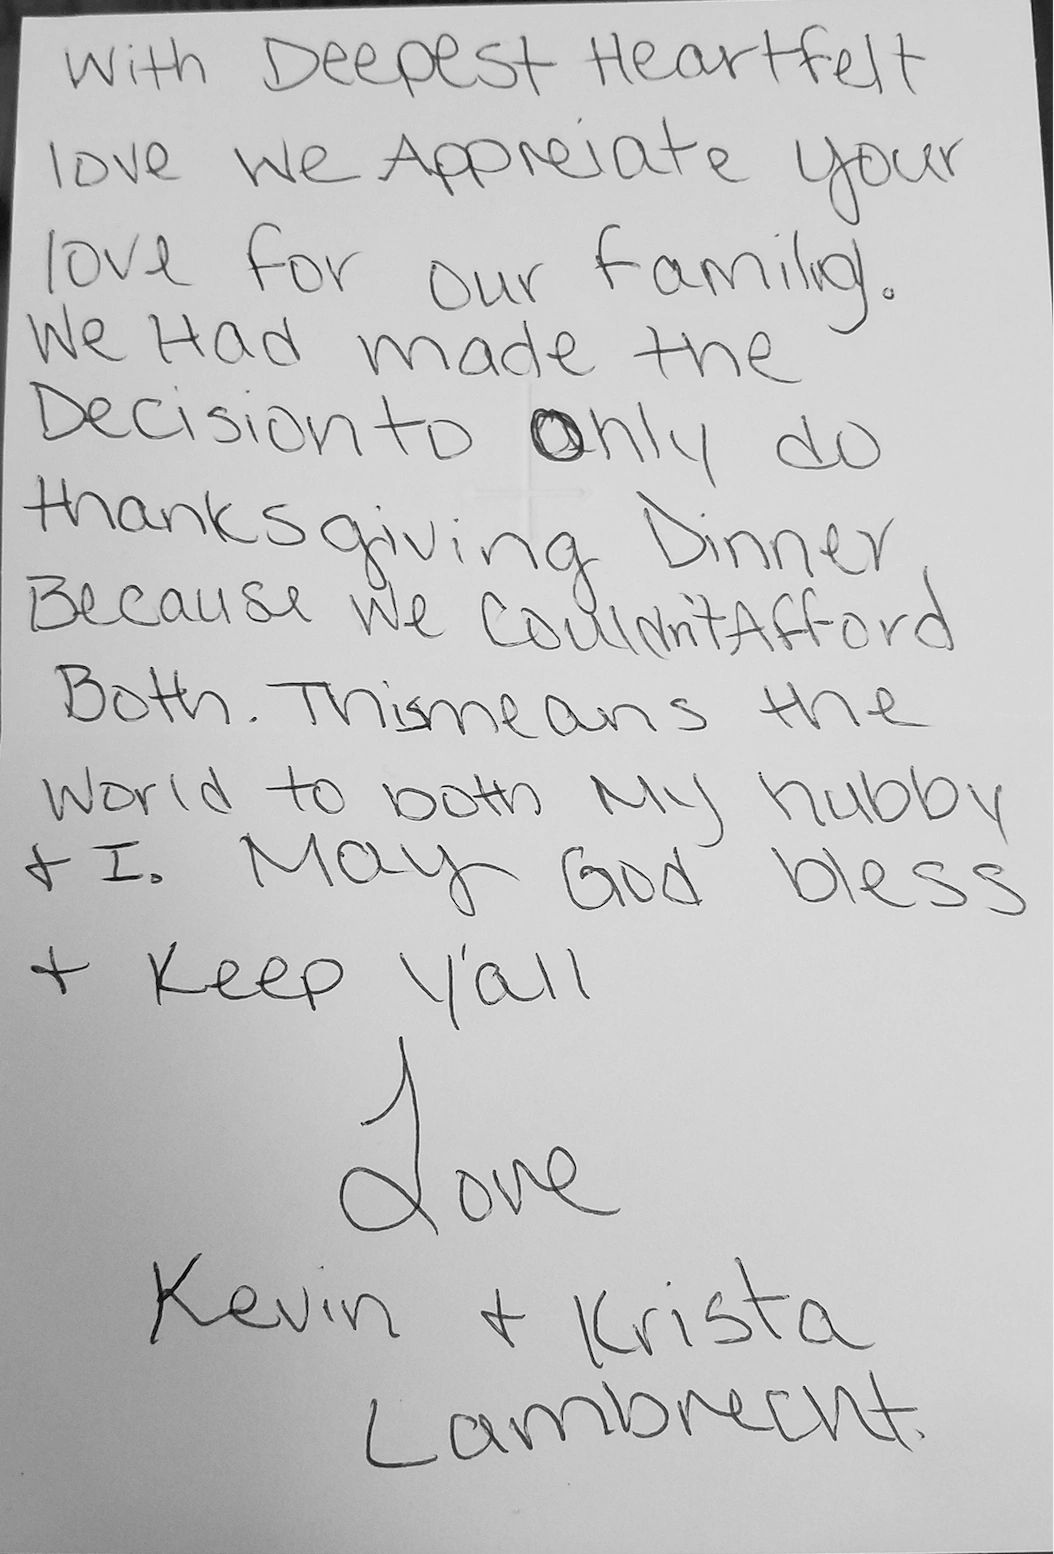 With Deepest Heartfelt
love we Appreiate your
love for our family.
We Had made the
Decision to only do
thanksgiving Dinner
Because we Couldn't Afford
Both. This means the
World to both My hubby
+ I. May God bless
+ Keep y'all
Love
Kevin + Krista
Lambrecht.